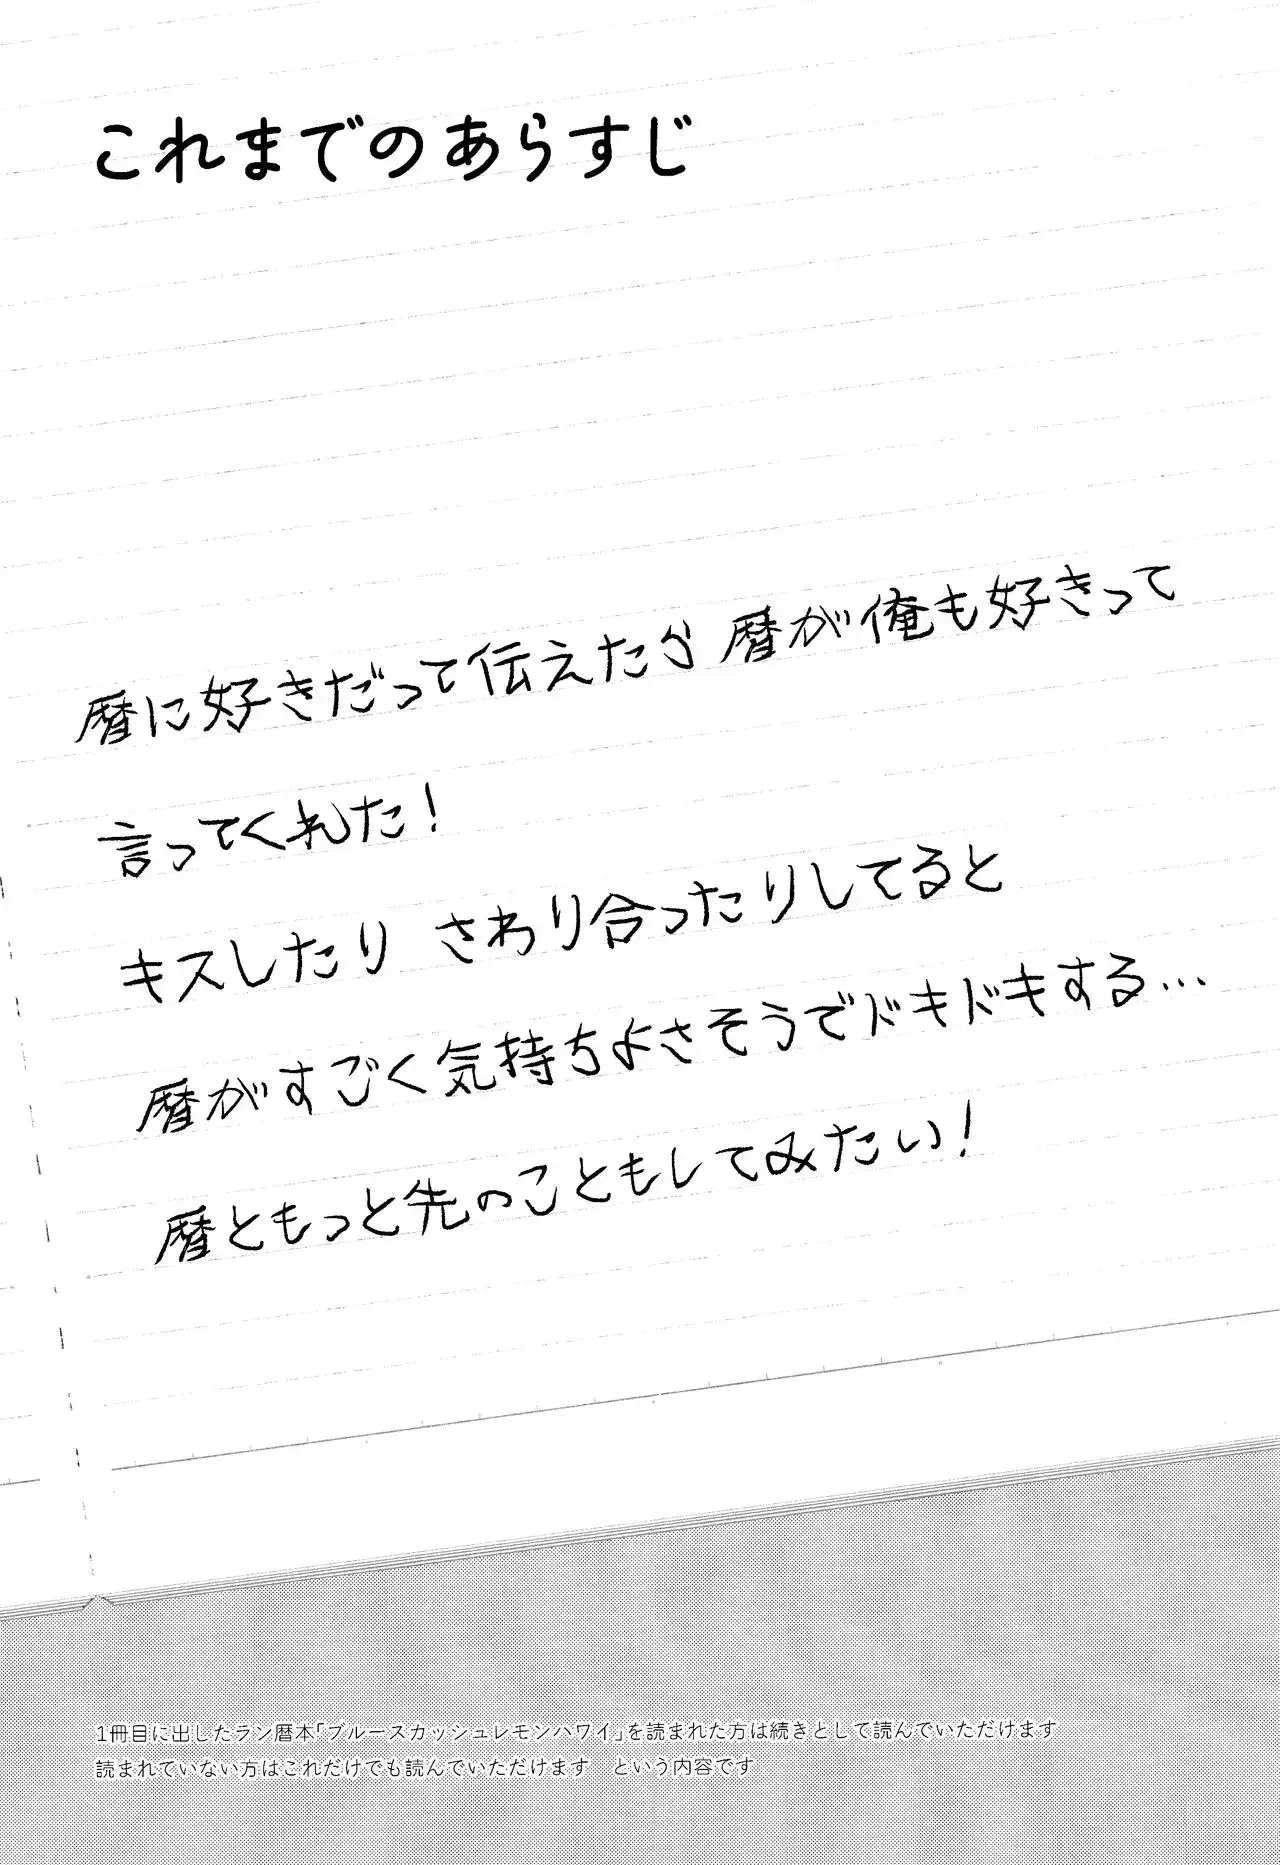 これまでのあらすじ
暦に好きだって伝えたら 暦が俺も好きって
言ってくれた！
キスしたり さわり合ったりしてると
暦がすごく気持ちよさそうでドキドキする…
暦ともっと先のこともしてみたい！
1冊目に出したラン暦本「ブルースカッシュレモンハワイ」を読まれた方は続きとして読んでいただけます
読まれていない方はこれだけでも読んでいただけます　という内容です